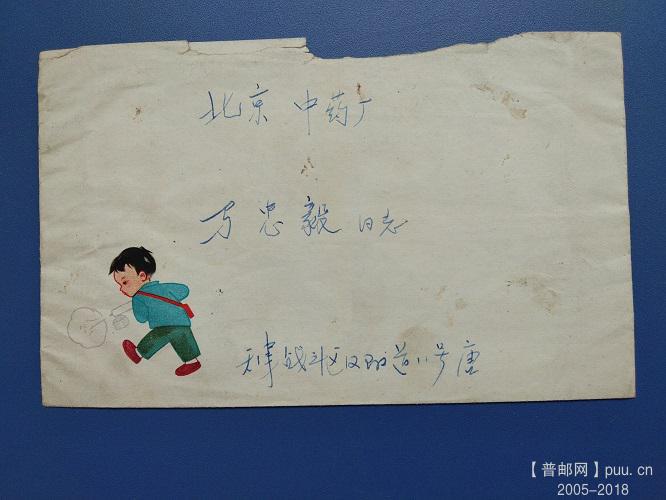 北京 中药厂
万忠毅 同志
天津战斗区 道11号唐
【普邮网】puu.cn
2005-2018